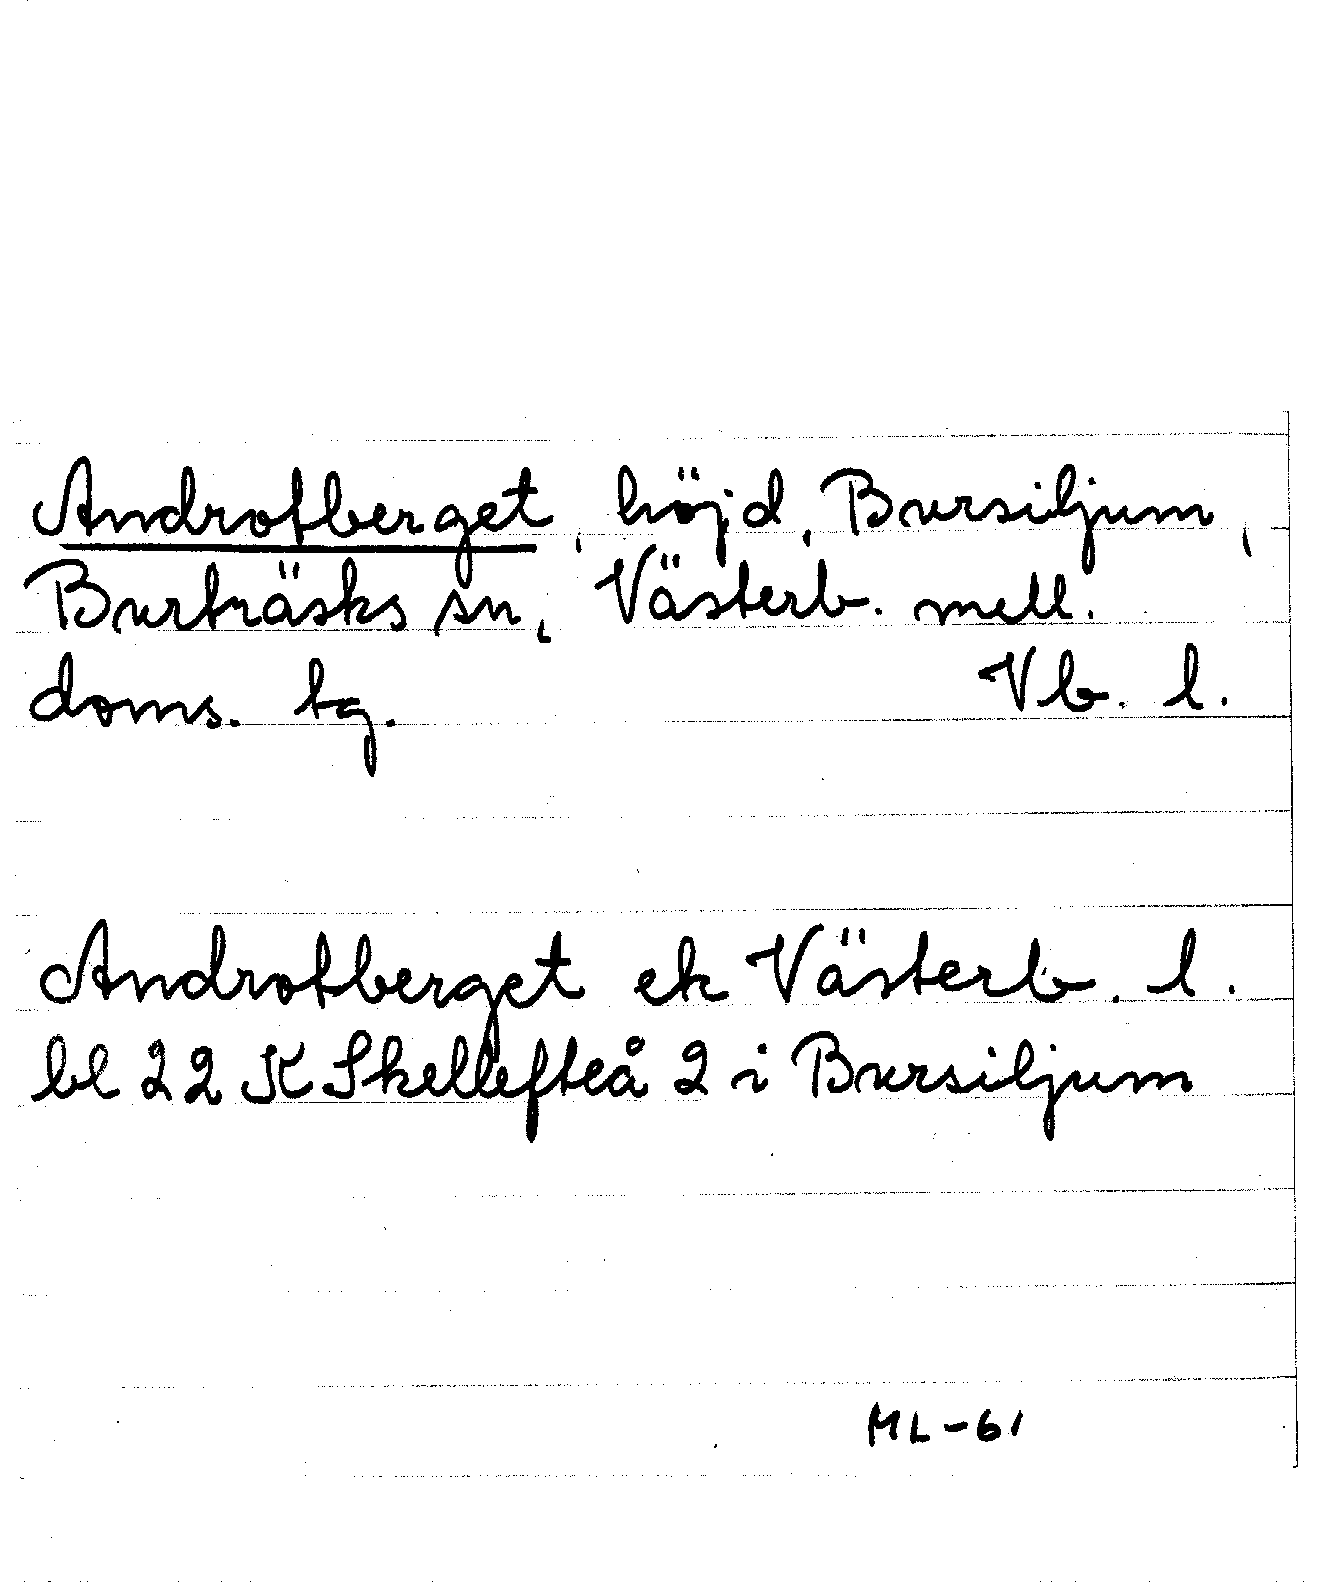 Androtberget, höjd, Bursiljum,
Burträsks sn, Västerb. mell.
doms. tg. Vb. l.
Androtberget ek Västerb. l.
bl 22 K Skellefteå 2 i Bursiljum
ML-61